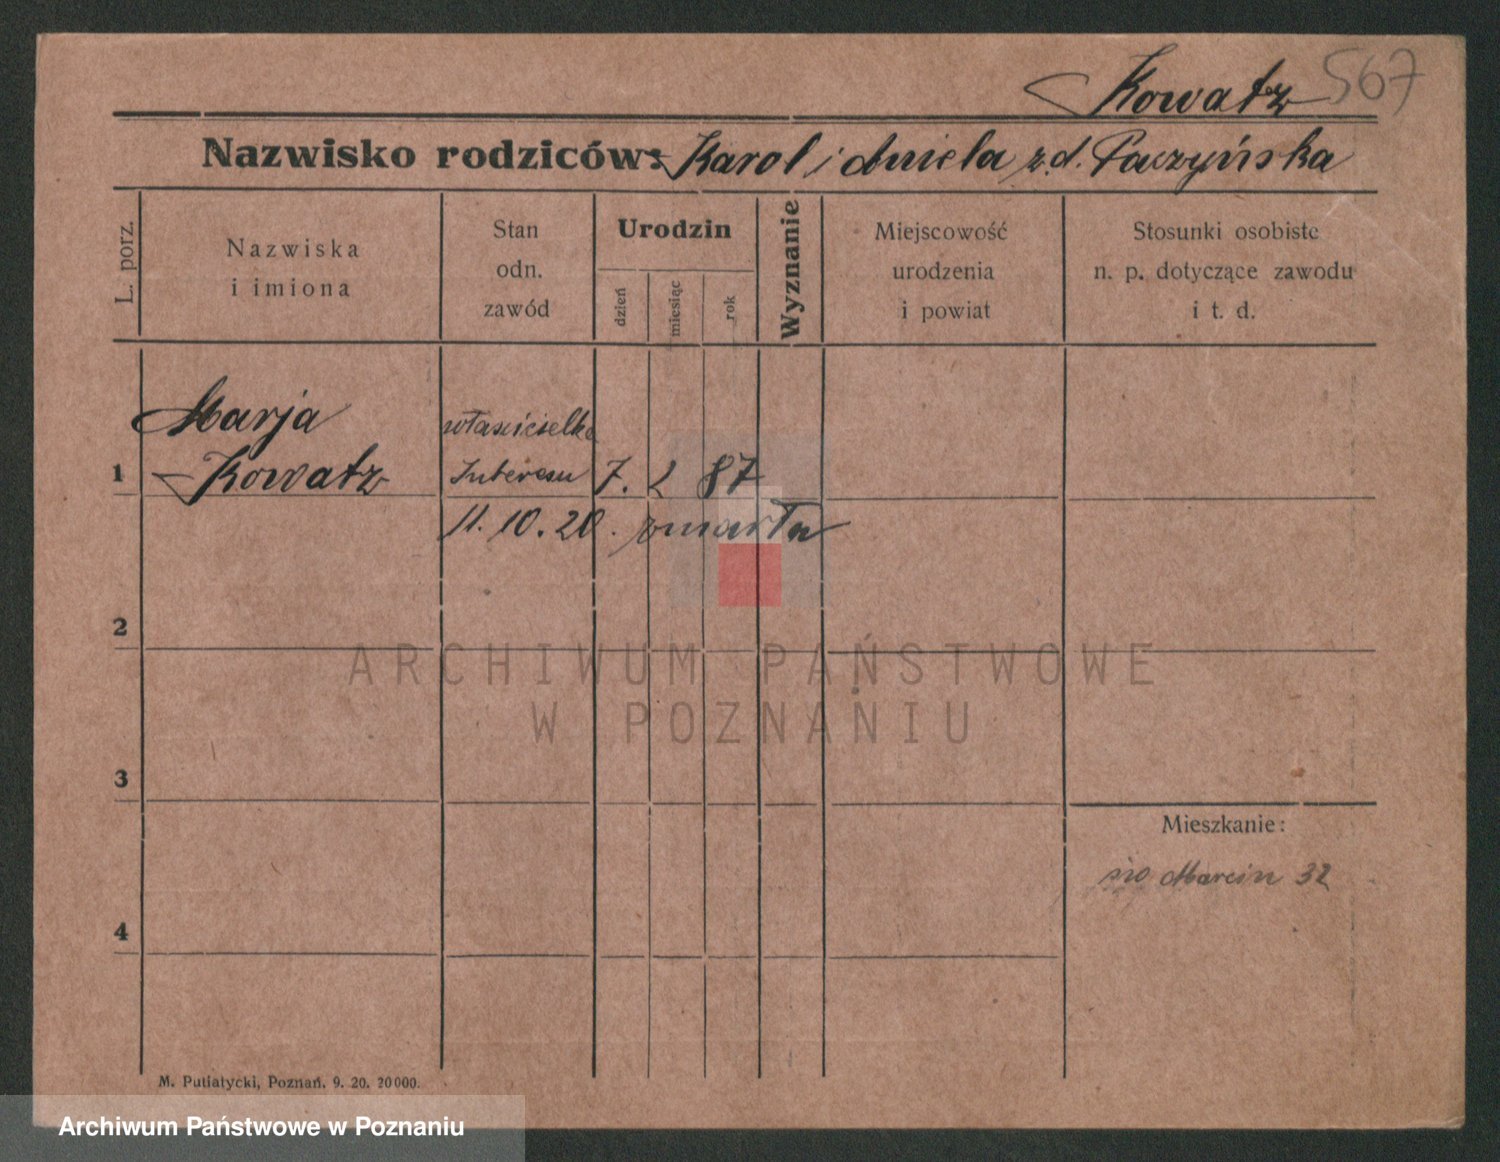 Kowatz 567
Nazwisko rodziców: Karol i Aniela z.d. Paczyńska
L. porz.
Nazwiska
i imiona
Stan
odn.
zawód
Urodzin
dzień
miesiąc
rok
Wyznanie
Miejscowość
urodzenia
i powiat
Stosunki osobiste
n. p. dotyczące zawodu
i t. d.
Marja
Kowatz
właścicielka
Interesu
1
7. 2 87
11. 10. 20. zmarła
2
3
4
ARCHIWUM PAŃSTWOWE
W POZNANIU
Mieszkanie:
Marcin 32
M. Putiatycki, Poznań. 9. 20. 20000.
Archiwum Państwowe w Poznaniu